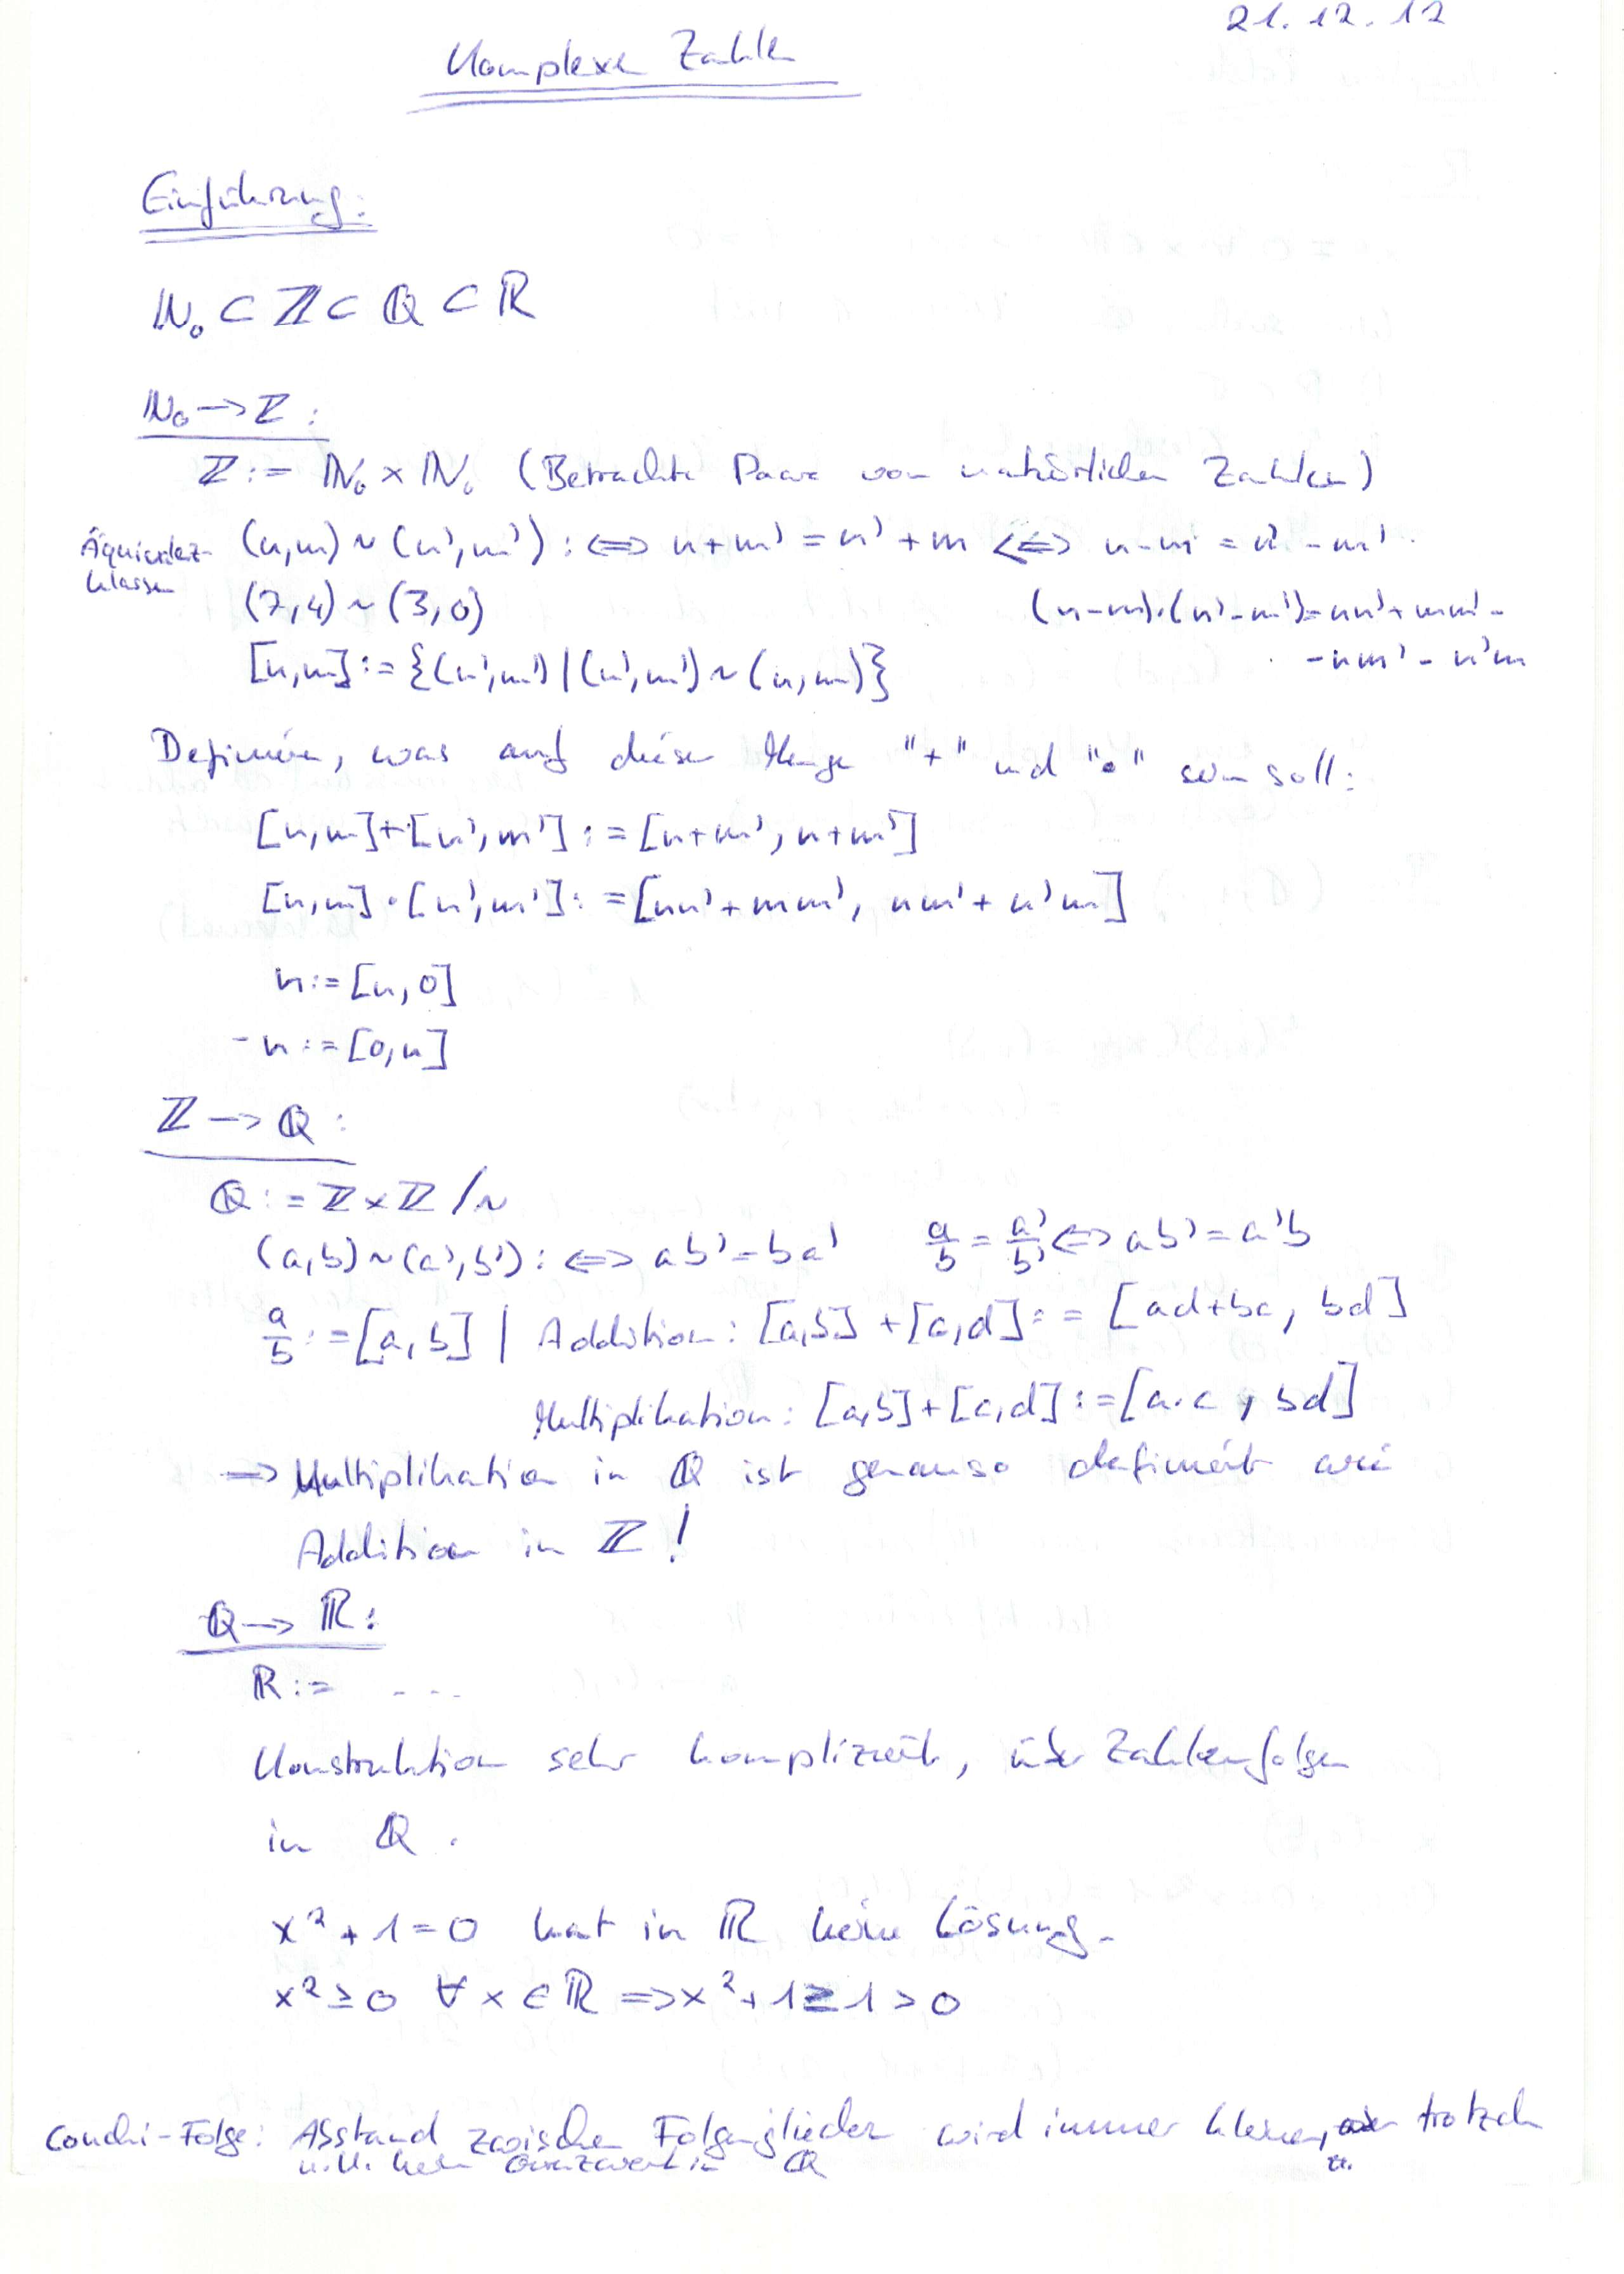 21.12.12
Komplexe Zahlen
Einführung:
ℕ₀ ⊂ ℤ ⊂ ℚ ⊂ ℝ
ℕ₀ → ℤ:
ℤ := ℕ₀ × ℕ₀ (Betrachte Paare von natürlichen Zahlen)
Äquivalenz-
klassen
(n,m) ~ (n',m') :⇔ n+m' = n'+m ⇔ n-m = n'-m'
(7,4) ~ (3,0)
(n-m)·(n'-m') = nn'+mm'-
-nm'-n'm
[n,m] := {(n',m') | (n',m') ~ (n,m)}
Definieren, was auf dieser Menge "+" und "•" sein soll:
[n,m]+[n',m'] := [n+m', n+m']
[n,m]·[n',m'] := [nn'+mm', nm'+n'm]
n := [n,0]
-n := [0,n]
ℤ → ℚ:
ℚ := ℤ × ℤ /~
(a,b) ~ (a',b') :⇔ ab' = ba' a/b = a'/b' ⇔ ab' = a'b
a/b := [a,b] | Addition: [a,b] + [c,d] := [ad+bc, bd]
Multiplikation: [a,b]+[c,d] := [a·c, bd]
⇒ Multiplikation in ℚ ist genauso definiert wie
Addition in ℤ!
ℚ → ℝ:
ℝ := ...
Konstruktion sehr kompliziert, über Zahlenfolgen
in ℚ.
x²+1=0 hat in ℝ keine Lösung.
x² ≥ 0 ∀ x ∈ ℝ ⇒ x²+1 ≥ 1 > 0
Couchi-Folge: Abstand zwischen Folgenglieder wird immer kleiner, trotzdem
u.U. kein Grenzwert in ℚ